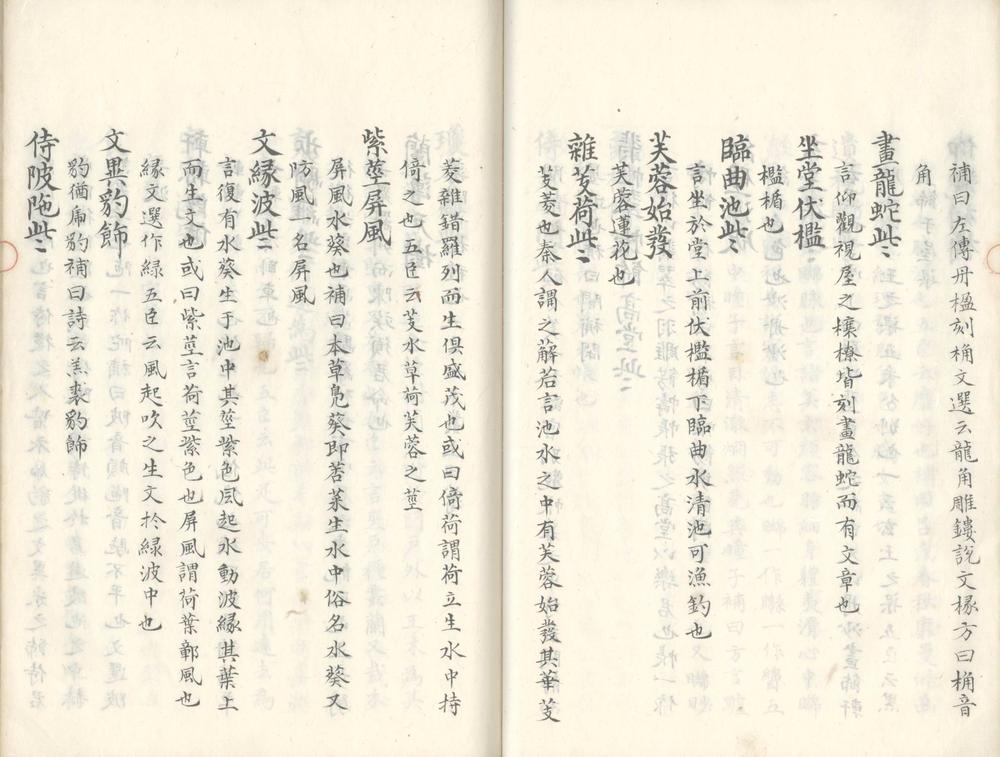 補曰左傳丹楹刻桷文選云龍角雕鏤說文椽方曰桷音
角
畫龍蛇些〻
言仰觀視屋之欀橑皆刻畫龍蛇而有文章也
坐堂伏檻〻
檻楯也
臨曲池些〻
言坐於堂上前伏檻楯下臨曲水清池可漁釣也
芙蓉始發
芙蓉蓮花也
雜芰荷些〻
芰菱也秦人謂之薢若言池水之中有芙蓉始發其華芰
菱雜錯羅列而生俱盛茂也或曰倚荷謂荷立生水中持
倚之也五臣云芰水草荷芙蓉之莖
紫莖屏風
屏風水葵也補曰本草鳧葵即莕菜生水中俗名水葵又
防風一名屏風
文緣波些〻
言復有水葵生于池中其莖紫色風起水動波緣其葉上
而生文也或曰紫莖言荷莖紫色也屏風謂荷葉鄣風也
緣文選作綠五臣云風起吹之生文扵綠波中也
文異豹飾
豹猶虎豹補曰詩云羔裘豹飾
侍陂陁些〻